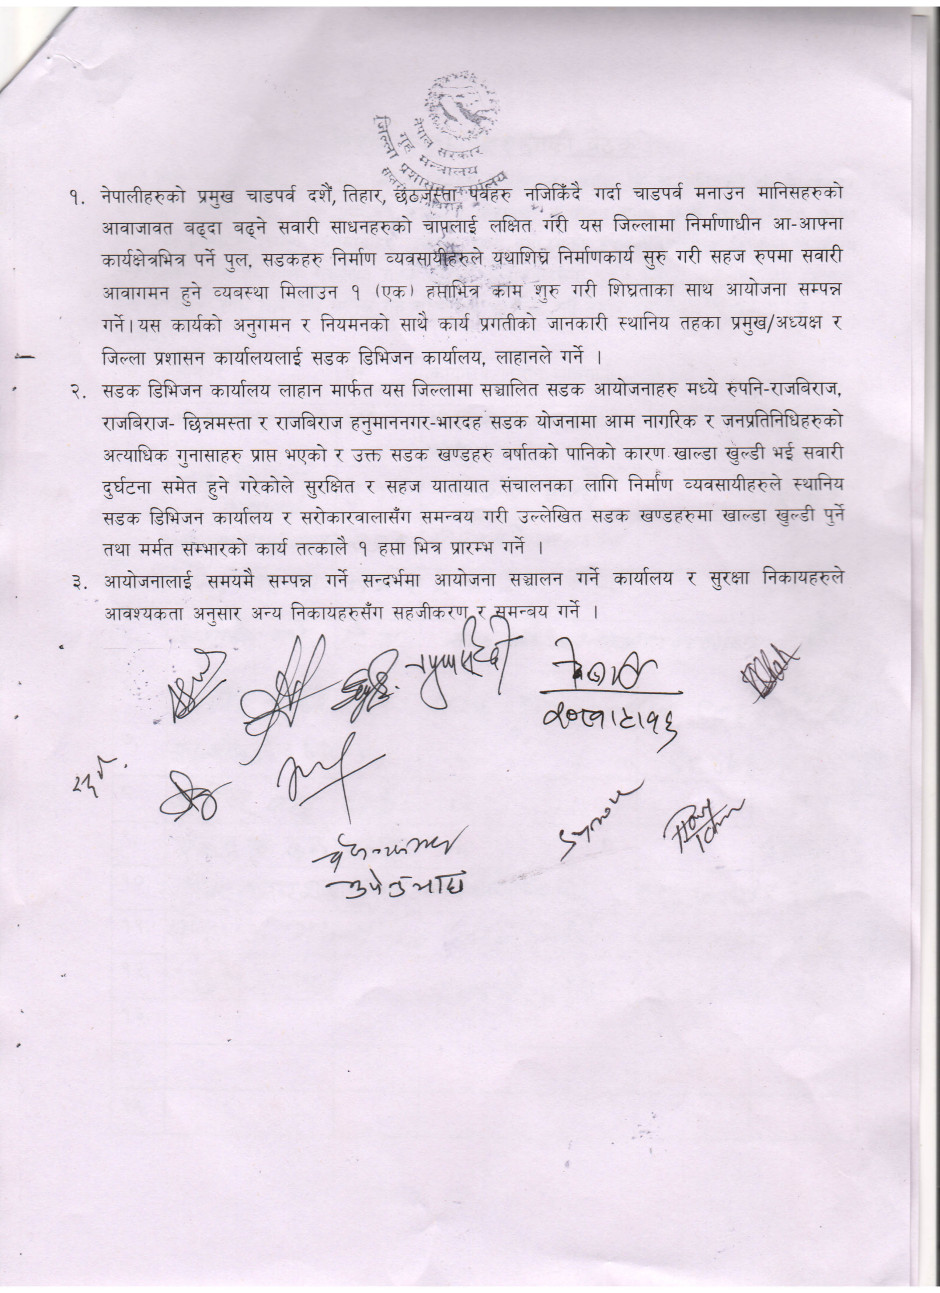 नेपाल सरकार
गृह मन्त्रालय
जिल्ला प्रशासन कार्यालय
१. नेपालीहरुको प्रमुख चाडपर्व दशैं, तिहार, छठजस्ता पर्वहरु नजिकिँदै गर्दा चाडपर्व मनाउन मानिसहरुको
आवाजावत बढ्दा बढ्ने सवारी साधनहरुको चापलाई लक्षित गरी यस जिल्लामा निर्माणाधीन आ-आफ्ना
कार्यक्षेत्रभित्र पर्ने पुल, सडकहरु निर्माण व्यवसायीहरुले यथाशिघ्र निर्माणकार्य सुरु गरी सहज रुपमा सवारी
आवागमन हुने व्यवस्था मिलाउन १ (एक) हप्ताभित्र काम शुरु गरी शिघ्रताका साथ आयोजना सम्पन्न
गर्ने।यस कार्यको अनुगमन र नियमनको साथै कार्य प्रगतीको जानकारी स्थानिय तहका प्रमुख/अध्यक्ष र
जिल्ला प्रशासन कार्यालयलाई सडक डिभिजन कार्यालय, लाहानले गर्ने ।
२. सडक डिभिजन कार्यालय लाहान मार्फत यस जिल्लामा सञ्चालित सडक आयोजनाहरु मध्ये रुपनि-राजबिराज,
राजबिराज- छिन्नमस्ता र राजबिराज हनुमाननगर-भारदह सडक योजनामा आम नागरिक र जनप्रतिनिधिहरुको
अत्याधिक गुनासाहरु प्राप्त भएको र उक्त सडक खण्डहरु बर्षातको पानिको कारण खाल्डा खुल्डी भई सवारी
दुर्घटना समेत हुने गरेकोले सुरक्षित र सहज यातायात संचालनका लागि निर्माण व्यवसायीहरुले स्थानिय
सडक डिभिजन कार्यालय र सरोकारवालासँग समन्वय गरी उल्लेखित सडक खण्डहरुमा खाल्डा खुल्डी पुर्ने
तथा मर्मत सम्भारको कार्य तत्कालै १ हप्ता भित्र प्रारम्भ गर्ने ।
३. आयोजनालाई समयमै सम्पन्न गर्ने सन्दर्भमा आयोजना सञ्चालन गर्ने कार्यालय र सुरक्षा निकायहरुले
आवश्यकता अनुसार अन्य निकायहरुसँग सहजीकरण र समन्वय गर्ने ।